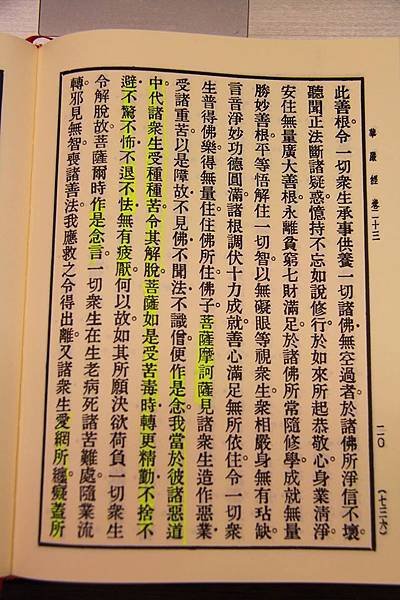 華嚴經卷二十三
二〇
(七三六)
此善根。令一切眾生承事供養一切諸佛。無空過者。於諸佛所。淨信不壞。
聽聞正法。斷諸疑惑。憶持不忘。如說修行。於如來所。起恭敬心。身業清淨。
安住無量廣大善根。永離貧窮。七財滿足。於諸佛所。常隨修學。成就無量
勝妙善根。平等悟解。住一切智。以無礙眼。等視眾生。眾相嚴身。無有玷缺。
言音淨妙。功德圓滿。諸根調伏。十力成就。善心滿足。無所依住。令一切眾
生普得佛樂。得無量住。住佛所住。佛子。菩薩摩訶薩。見諸眾生。造作惡業。
受諸重苦。以是障故。不見佛。不聞法。不識僧。便作是念。我當於彼諸惡道
中。代諸眾生受種種苦。令其解脫。菩薩如是受苦毒時。轉更精勤。不捨。不
避。不驚。不怖。不退。不怯。無有疲厭。何以故。如其所願。決欲荷負一切眾生
令解脫故。菩薩爾時。作是念言。一切眾生。在生老病死諸苦難處。隨業流
轉。邪見無智。喪諸善法。我應救之。令得出離。又諸眾生。愛網所纏。癡蓋所